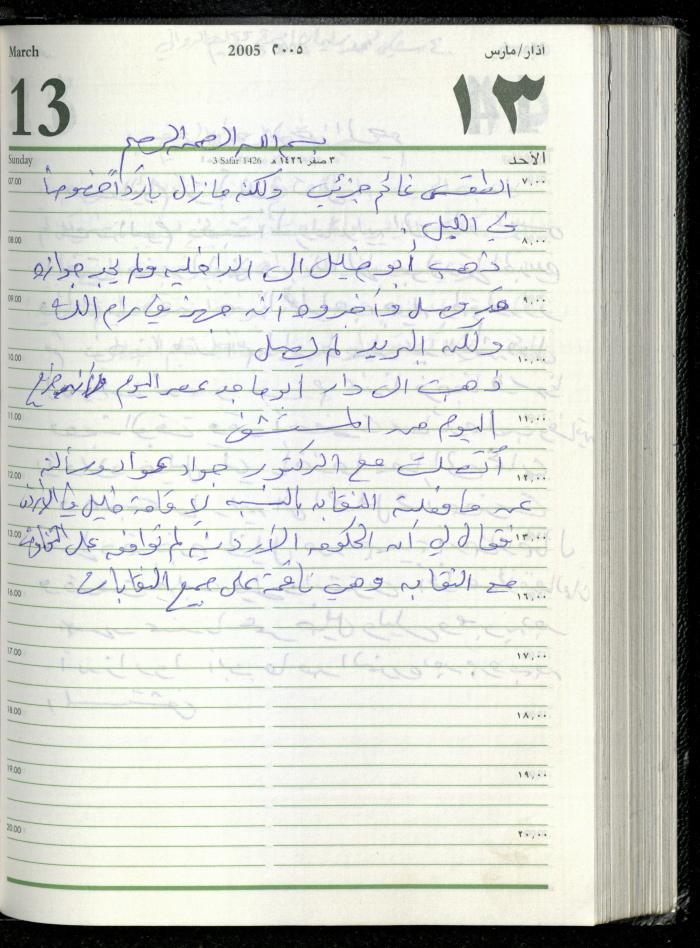 March 2005 ٢٠٠٥ اذار/مارس
13 ١٣
بسم الله الرحمن الرحيم
Sunday 3 Safar 1426 ٣ صفر ١٤٢٦ هـ الأحد
07.00 الطقس غائم جزئي ولكنه مازال بارداً خصوصاً ٧,٠٠
في الليل .
08.00 ٨,٠٠
ذهب أبو خليل الى الداخليه ولم يجد جوازه
09.00 قد وصل وأخبروه أنه جهز في رام الله ٩,٠٠
ولكنه البريد لم يصل
10.00 ١٠,٠٠
ذهبت الى دار ابو ماجد عصر اليوم
11.00 اليوم من المستشفى ١١,٠٠
أتصلت مع الدكتور جواد عواد وسألته
12.00 ١٢,٠٠
عن ما فعلته النقابه بالنسبه لإقامة خليل في الأردن
13.00 فقال لي أنه الحكومه الأردنيه لم توافق على ١٣,٠٠
مع النقابه وهي ناقمة على جميع النقابات
16.00 ١٦,٠٠
17.00 ١٧,٠٠
18.00 ١٨,٠٠
19.00 ١٩,٠٠
20.00 ٢٠,٠٠